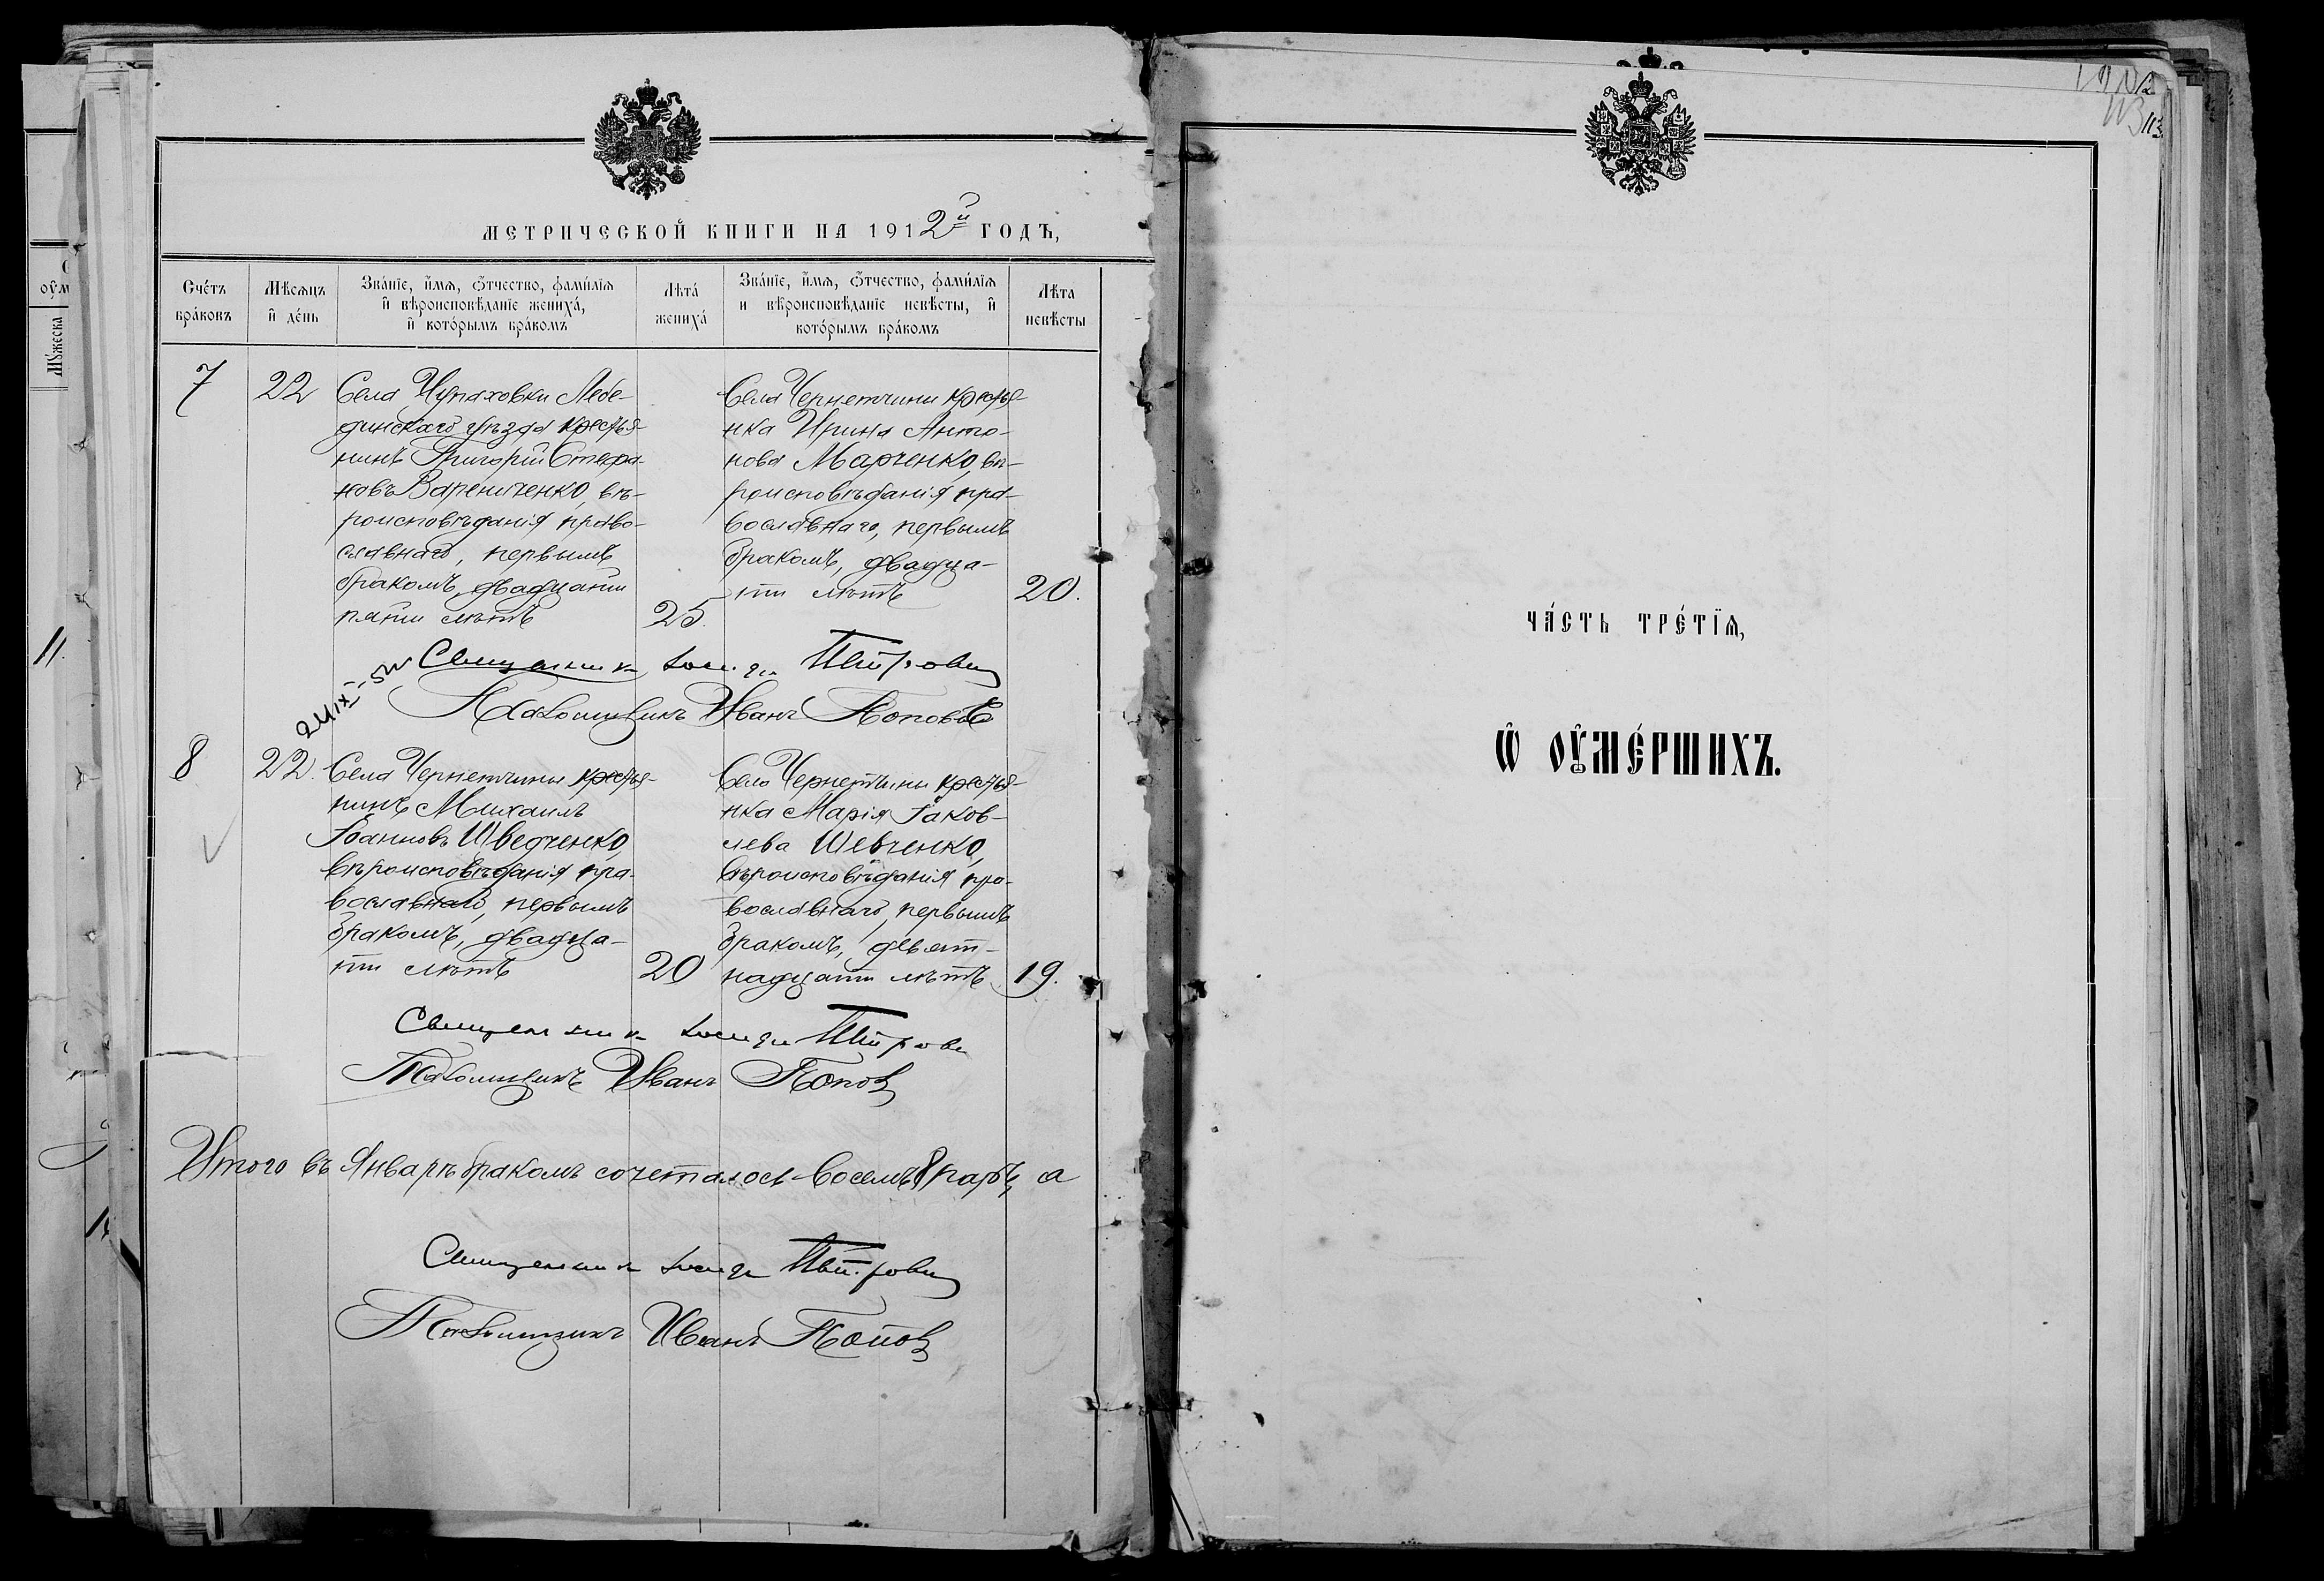 МЕТРИЧЕСКОЙ КНИГИ НА 1912й ГОДЪ,
Счетъ браковъ
Мѣсяцъ и день
Званіе, имя, отчество, фамилія и вѣроисповѣданіе жениха, и которымъ бракомъ
Лѣта жениха
Званіе, имя, отчество, фамилія и вѣроисповѣданіе невѣсты, и которымъ бракомъ
Лѣта невѣсты
7
22
Села Чупаховки Лебе-
динскаго уѣзда крестья-
нинъ Григорій Стефа-
новъ Варениченко, вѣ-
роисповѣданія право-
славнаго, первымъ
бракомъ, двадцати
пяти лѣтъ
25.
Села Чернетчины крестья-
нка Ирина Анто-
нова Марченко, вѣ-
роисповѣданія пра-
вославнаго, первымъ
бракомъ, двадца-
ти лѣтъ
20.
Священникъ Іосифъ Петровъ
Псаломщикъ Иванъ Поповъ
8
22.
Села Чернетчины крестья-
нинъ Михаилъ
Іоанновъ Шведченко,
вѣроисповѣданія пра-
вославнаго, первымъ
бракомъ, двадца-
ти лѣтъ
20
Села Чернетчины крестья-
нка Марія Іаков-
лева Шевченко,
вѣроисповѣданія пра-
вославнаго, первымъ
бракомъ, девят-
надцати лѣтъ
19.
Священникъ Іосифъ Петровъ
Псаломщикъ Иванъ Поповъ
Итого въ Январѣ бракомъ сочеталось восемь 8 паръ, а
Священникъ Іосифъ Петровъ
Псаломщикъ Иванъ Поповъ
ЧАСТЬ ТРЕТІЯ,
Ѡ ОУМЕРШИХЪ.
11.
Мужеска
113